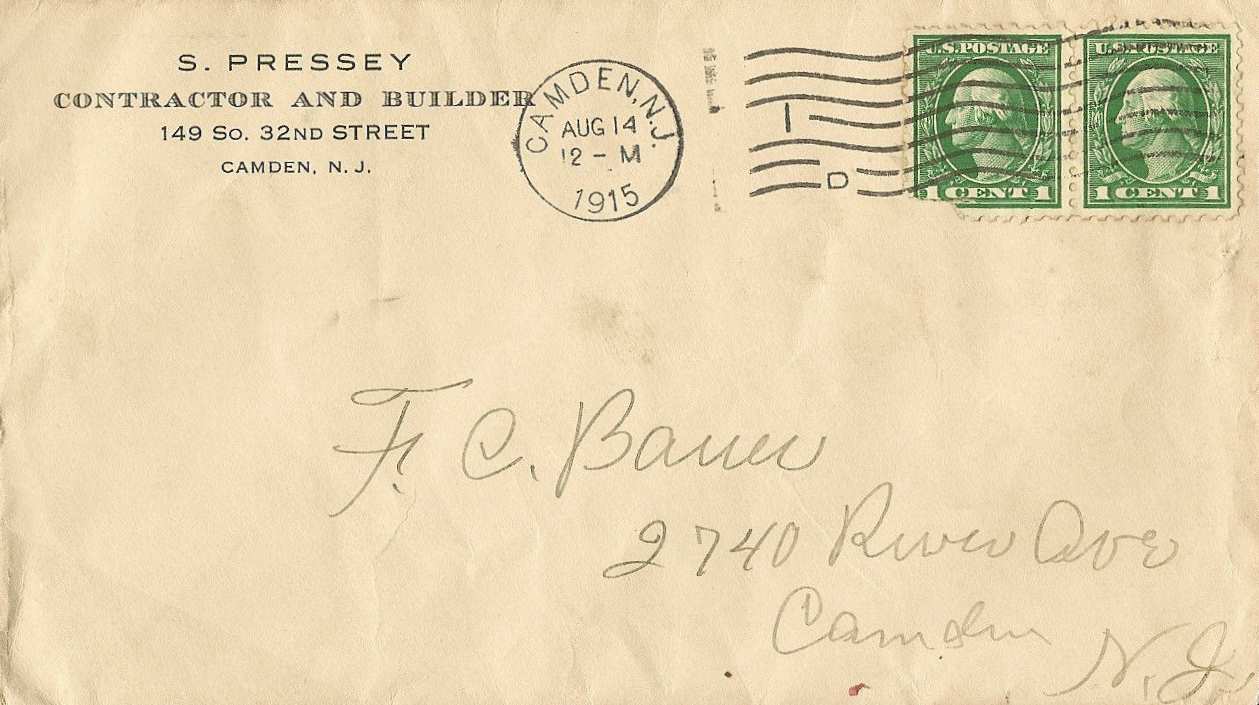 S. PRESSEY
CONTRACTOR AND BUILDER
149 SO. 32ND STREET
CAMDEN, N. J.
CAMDEN, N.J.
AUG 14
12 - M
1915
D
U.S. POSTAGE
1 CENT 1
U.S. POSTAGE
1 CENT 1
F. C. Bauer
2740 River Ave
Camden
N. J.